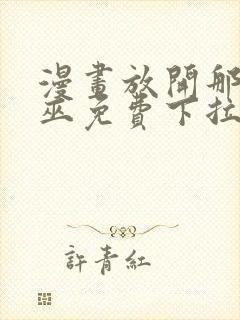 漫畫放開那
巫免費下拉
許青紅